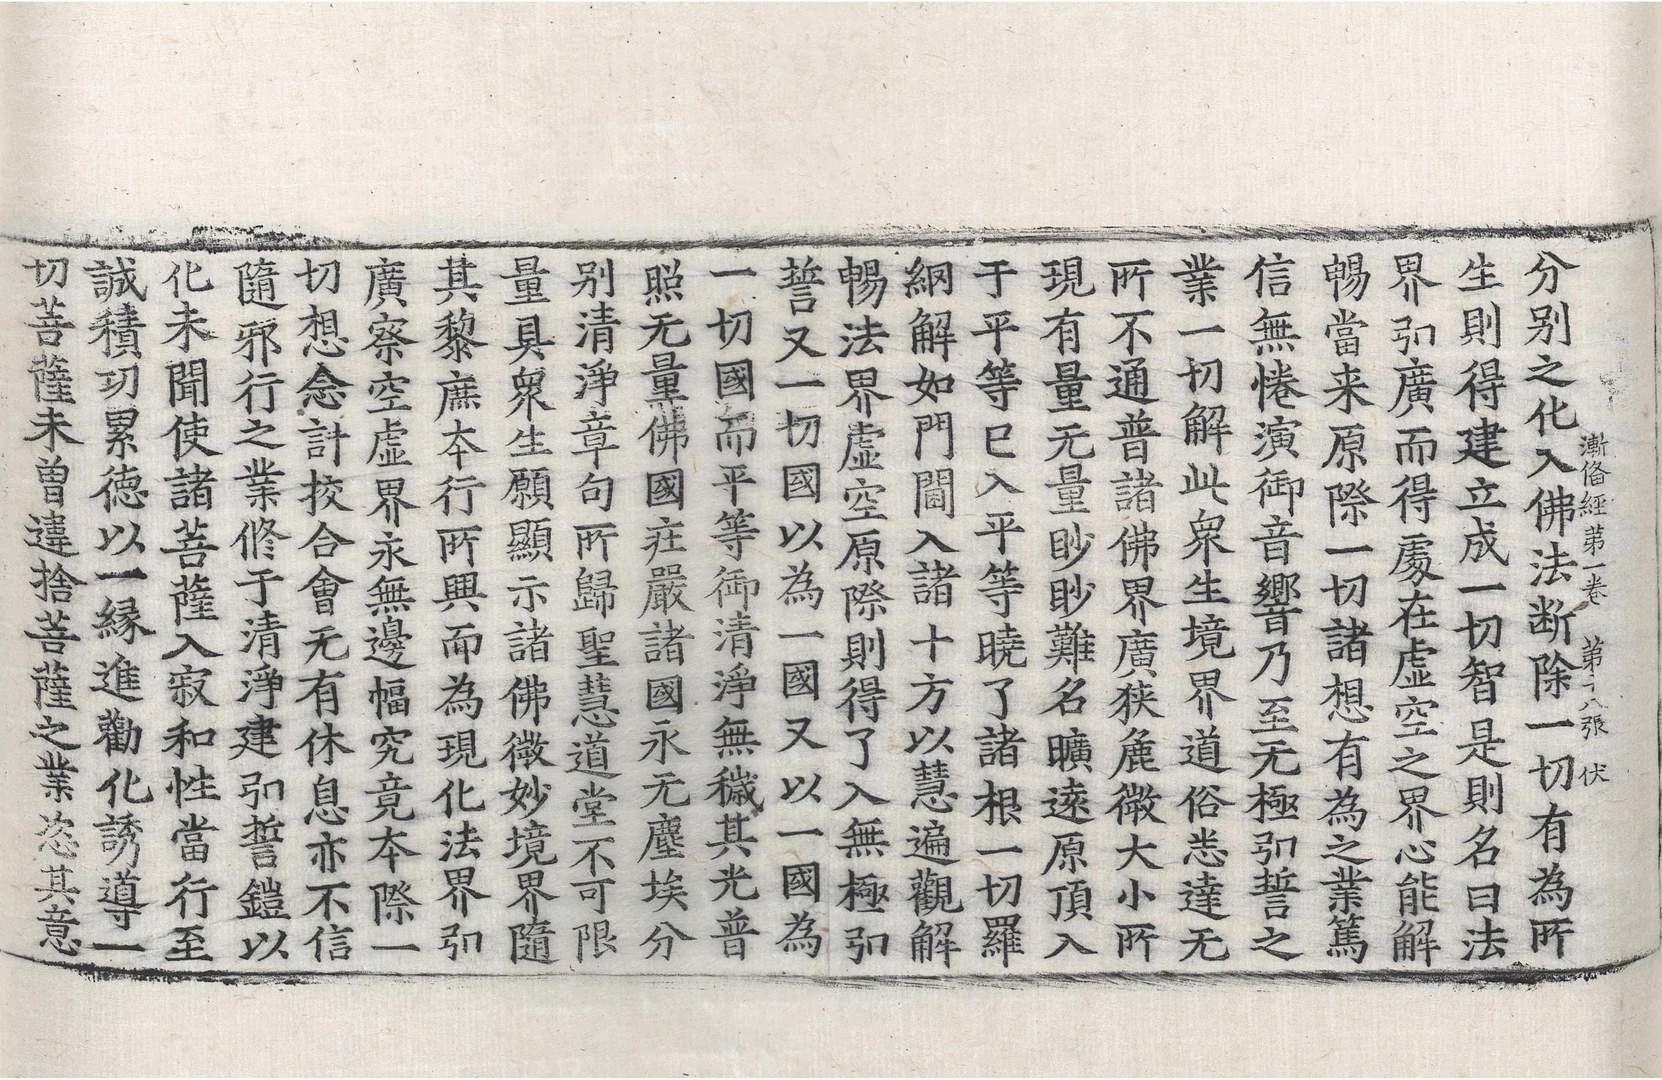 漸俻經第一卷　第十八張　伏
分別之化入佛法断除一切有為所
生則得建立成一切智是則名曰法
界弘廣而得處在虛空之界心能解
暢當来原際一切諸想有為之業篤
信無惓演御音響乃至无極弘誓之
業一切解此衆生境界道俗悉達无
所不通普諸佛界廣狹麁微大小所
現有量无量眇眇難名曠遠原頂入
于平等已入平等曉了諸根一切羅
網解如門閫入諸十方以慧遍觀解
暢法界虛空原際則得了入無極弘
誓又一切國以為一國又以一國為
一切國而平等御清淨無穢其光普
照无量佛國㽵嚴諸國永无塵埃分
別清淨章句所歸聖慧道堂不可限
量具衆生願顯示諸佛微妙境界隨
其黎庶夲行所興而為現化法界弘
廣察空虛界永無邊幅究竟夲際一
切想念計挍合會无有休息亦不信
隨邪行之業修于清淨建弘誓鎧以
化未聞使諸菩薩入寂和性當行至
誠積功累德以一緣進勸化誘導一
切菩薩未曾違捨菩薩之業恣其意